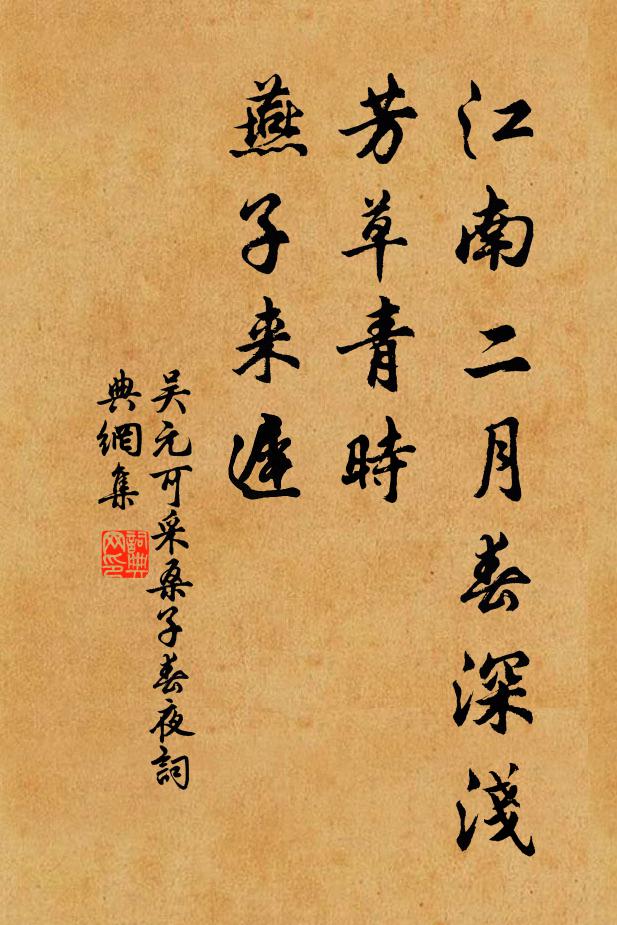 江南二月春深淺
芳草青時
燕子来遲
吴元可采桑子春夜詞
典網集
詞典
网印